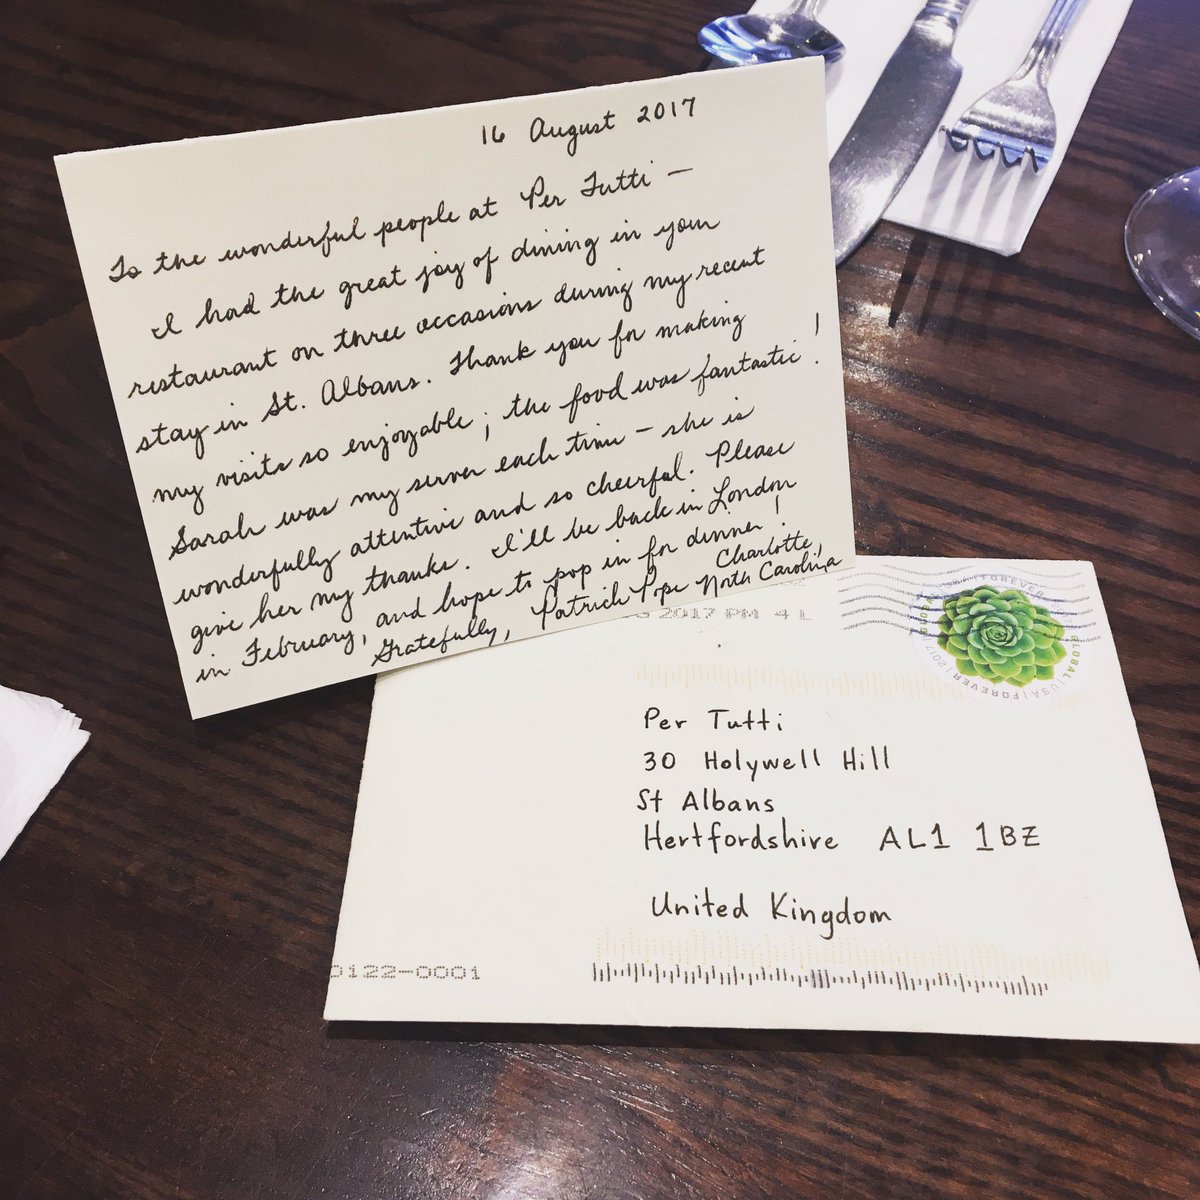 16 August 2017
To the wonderful people at Per Tutti —
I had the great joy of dining in your
restaurant on three occasions during my recent
stay in St. Albans. Thank you for making
my visits so enjoyable; the food was fantastic!
Sarah was my server each time — she is
wonderfully attentive and so cheerful. Please
give her my thanks. I'll be back in London
in February, and hope to pop in for dinner!
Gratefully, Patrick Pope
Charlotte,
North Carolina
2017 PM 4 L
FOREVER
GLOBAL | USA | FOREVER | 2017
Per Tutti
30 Holywell Hill
St Albans
Hertfordshire AL1 1BZ
United Kingdom
0122-0001